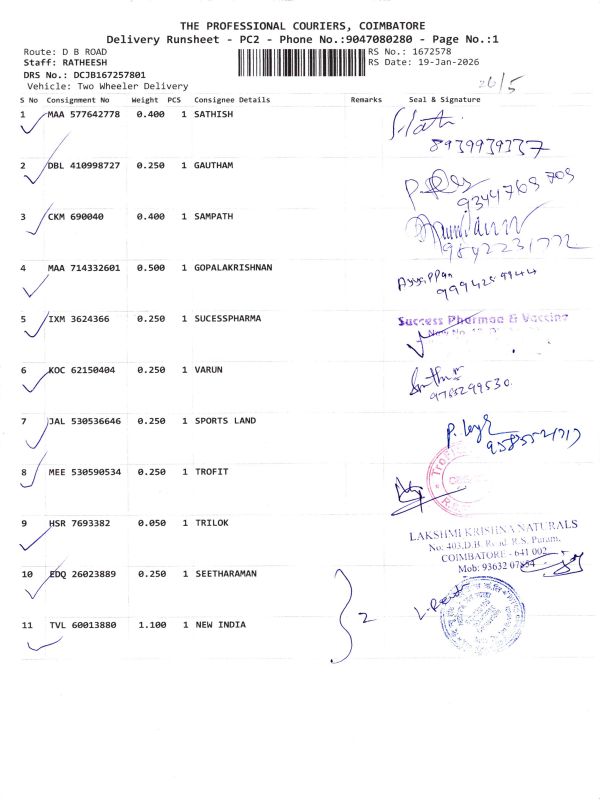 THE PROFESSIONAL COURIERS, COIMBATORE
Delivery Runsheet - PC2 - Phone No.:9047080280 - Page No.:1
Route: D B ROAD
RS No.: 1672578
Staff: RATHEESH
RS Date: 19-Jan-2026
DRS No.: DCJB167257801
Vehicle: Two Wheeler Delivery
26/5
S No Consignment No Weight PCS Consignee Details Remarks Seal & Signature
1 MAA 577642778 0.400 1 SATHISH
8939939337
2 DBL 410998727 0.250 1 GAUTHAM
9344768708
3 CKM 690040 0.400 1 SAMPATH
9842231772
4 MAA 714332601 0.500 1 GOPALAKRISHNAN
5 IXM 3624366 0.250 1 SUCESSPHARMA
Success Pharmaa & Vaccine
6 KOC 62150404 0.250 1 VARUN
9763299530
7 JAL 530536646 0.250 1 SPORTS LAND
8 MEE 530590534 0.250 1 TROFIT
9 HSR 7693382 0.050 1 TRILOK
LAKSHMI KRISHNA NATURALS
No: 403,D.B. Road R.S. Puram,
COIMBATORE - 641 002
Mob: 93632 07854
10 EDQ 26023889 0.250 1 SEETHARAMAN
2
11 TVL 60013880 1.100 1 NEW INDIA